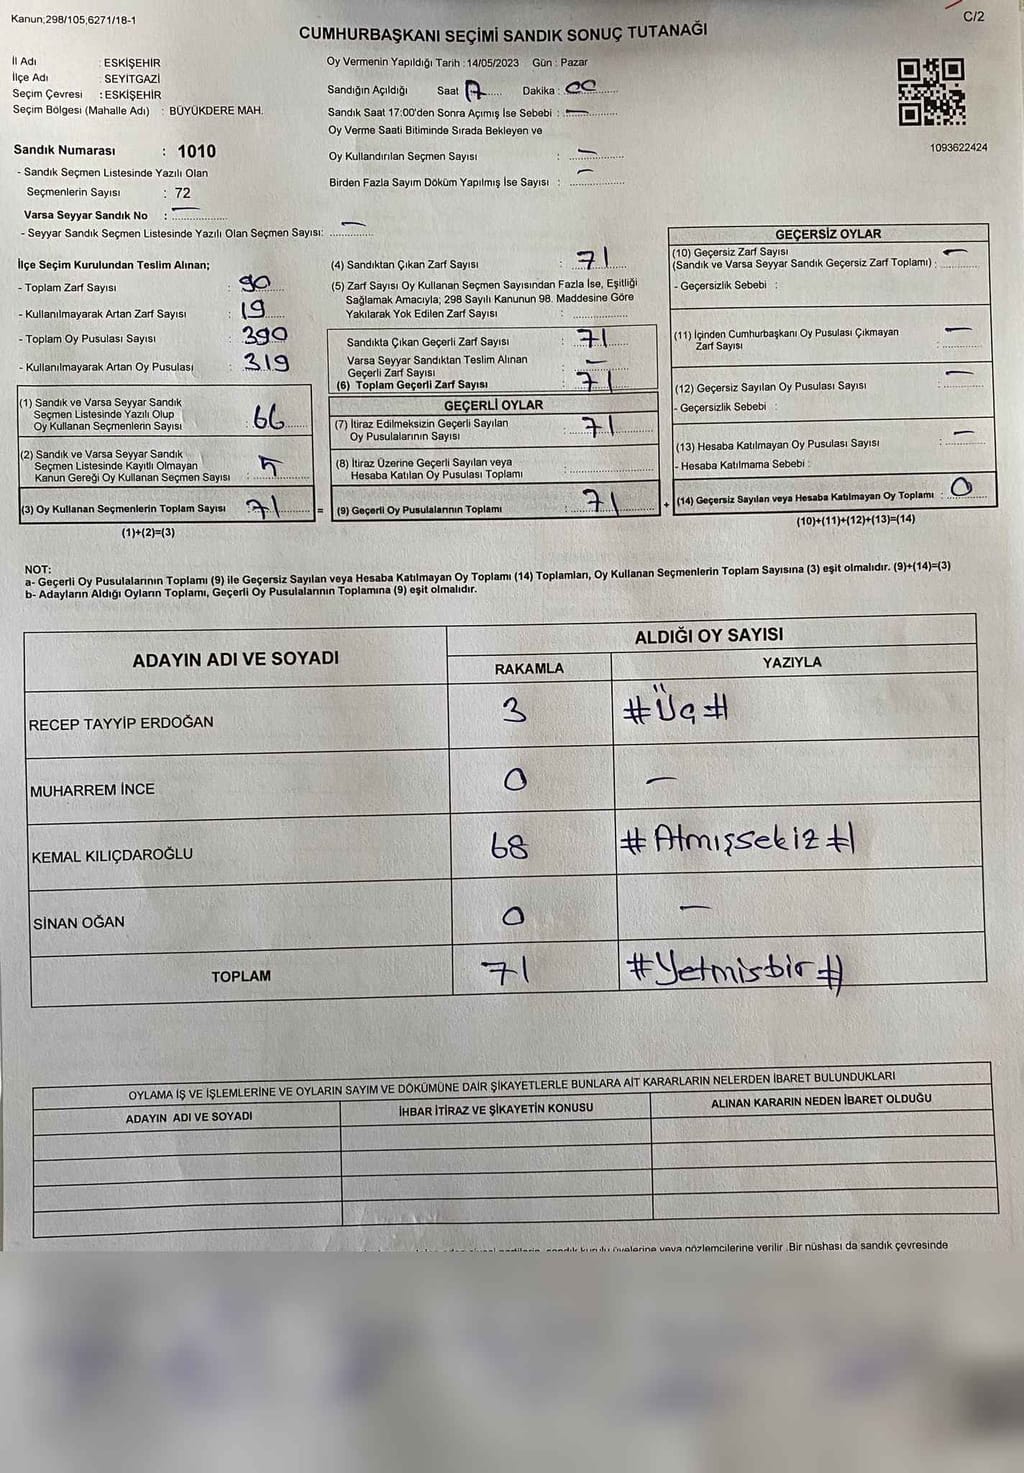 Kanun;298/105,6271/18-1
C/2
CUMHURBAŞKANI SEÇİMİ SANDIK SONUÇ TUTANAĞI
İl Adı : ESKİŞEHİR
İlçe Adı : SEYİTGAZİ
Seçim Çevresi : ESKİŞEHİR
Seçim Bölgesi (Mahalle Adı) : BÜYÜKDERE MAH.
Sandık Numarası : 1010
- Sandık Seçmen Listesinde Yazılı Olan
Seçmenlerin Sayısı : 72
Varsa Seyyar Sandık No : —
- Seyyar Sandık Seçmen Listesinde Yazılı Olan Seçmen Sayısı: —
Oy Vermenin Yapıldığı Tarih : 14/05/2023 Gün : Pazar
Sandığın Açıldığı Saat 17 Dakika : 00
Sandık Saat 17:00'den Sonra Açımış İse Sebebi : —
Oy Verme Saati Bitiminde Sırada Bekleyen ve
Oy Kullandırılan Seçmen Sayısı : —
Birden Fazla Sayım Döküm Yapılmış İse Sayısı : —
1093622424
İlçe Seçim Kurulundan Teslim Alınan;
- Toplam Zarf Sayısı : 90
- Kullanılmayarak Artan Zarf Sayısı : 19
- Toplam Oy Pusulası Sayısı : 390
- Kullanılmayarak Artan Oy Pusulası : 319
(1) Sandık ve Varsa Seyyar Sandık
Seçmen Listesinde Yazılı Olup
Oy Kullanan Seçmenlerin Sayısı : 66
(2) Sandık ve Varsa Seyyar Sandık
Seçmen Listesinde Kayıtlı Olmayan
Kanun Gereği Oy Kullanan Seçmen Sayısı : 5
(3) Oy Kullanan Seçmenlerin Toplam Sayısı 71 =
(1)+(2)=(3)
(4) Sandıktan Çıkan Zarf Sayısı : 71
(5) Zarf Sayısı Oy Kullanan Seçmen Sayısından Fazla İse, Eşitliği
Sağlamak Amacıyla; 298 Sayılı Kanunun 98. Maddesine Göre
Yakılarak Yok Edilen Zarf Sayısı :
Sandıkta Çıkan Geçerli Zarf Sayısı : 71
Varsa Seyyar Sandıktan Teslim Alınan
Geçerli Zarf Sayısı : —
(6) Toplam Geçerli Zarf Sayısı : 71
GEÇERLİ OYLAR
(7) İtiraz Edilmeksizin Geçerli Sayılan
Oy Pusulalarının Sayısı : 71
(8) İtiraz Üzerine Geçerli Sayılan veya
Hesaba Katılan Oy Pusulası Toplamı :
(9) Geçerli Oy Pusulalarının Toplamı : 71 +
GEÇERSİZ OYLAR
(10) Geçersiz Zarf Sayısı
(Sandık ve Varsa Seyyar Sandık Geçersiz Zarf Toplamı) : —
- Geçersizlik Sebebi :
(11) İçinden Cumhurbaşkanı Oy Pusulası Çıkmayan
Zarf Sayısı : —
(12) Geçersiz Sayılan Oy Pusulası Sayısı : —
- Geçersizlik Sebebi :
(13) Hesaba Katılmayan Oy Pusulası Sayısı : —
- Hesaba Katılmama Sebebi :
(14) Geçersiz Sayılan veya Hesaba Katılmayan Oy Toplamı : 0
(10)+(11)+(12)+(13)=(14)
NOT:
a- Geçerli Oy Pusulalarının Toplamı (9) ile Geçersiz Sayılan veya Hesaba Katılmayan Oy Toplamı (14) Toplamları, Oy Kullanan Seçmenlerin Toplam Sayısına (3) eşit olmalıdır. (9)+(14)=(3)
b- Adayların Aldığı Oyların Toplamı, Geçerli Oy Pusulalarının Toplamına (9) eşit olmalıdır.
ADAYIN ADI VE SOYADI
ALDIĞI OY SAYISI
RAKAMLA YAZIYLA
RECEP TAYYİP ERDOĞAN 3 # Üç #
MUHARREM İNCE 0 —
KEMAL KILIÇDAROĞLU 68 # Atmışsekiz #
SİNAN OĞAN 0 —
TOPLAM 71 # Yetmisbir #
OYLAMA İŞ VE İŞLEMLERİNE VE OYLARIN SAYIM VE DÖKÜMÜNE DAİR ŞİKAYETLERLE BUNLARA AİT KARARLARIN NELERDEN İBARET BULUNDUKLARI
ADAYIN ADI VE SOYADI İHBAR İTİRAZ VE ŞİKAYETİN KONUSU ALINAN KARARIN NEDEN İBARET OLDUĞU
sandık kurulu üyelerine veya gözlemcilerine verilir .Bir nüshası da sandık çevresinde